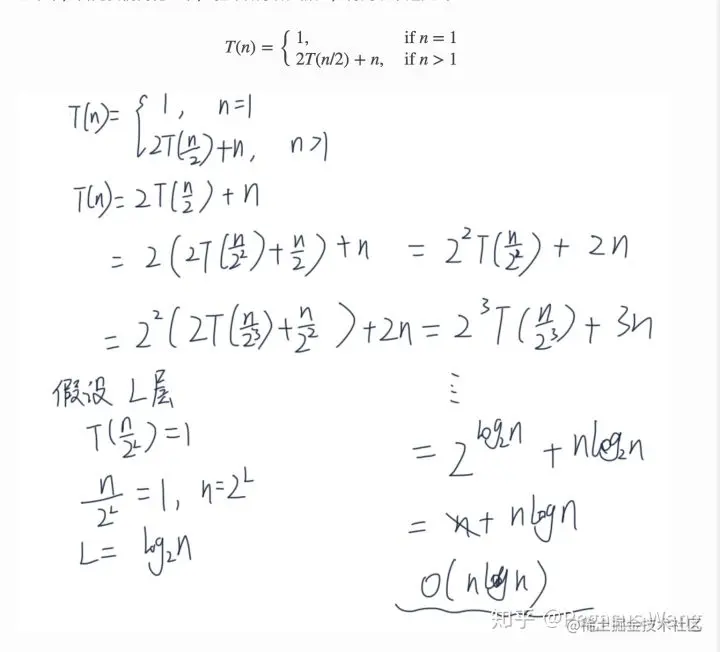 T(n) = { 1, if n = 1
2T(n/2) + n, if n > 1
T(n) = { 1, n=1
2T(n/2)+n, n>1
T(n) = 2T(n/2) + n
= 2(2T(n/2²)+n/2)+n = 2²T(n/2²) + 2n
= 2²(2T(n/2³)+n/2²)+2n = 2³T(n/2³) + 3n
假设 L层
⋮
T(n/2^L)=1
= 2^log₂n + nlog₂n
n/2^L = 1, n=2^L
= n + nlogn
L= log₂n
O(nlogn)
知乎 @Pegasus Wang
@稀土掘金技术社区